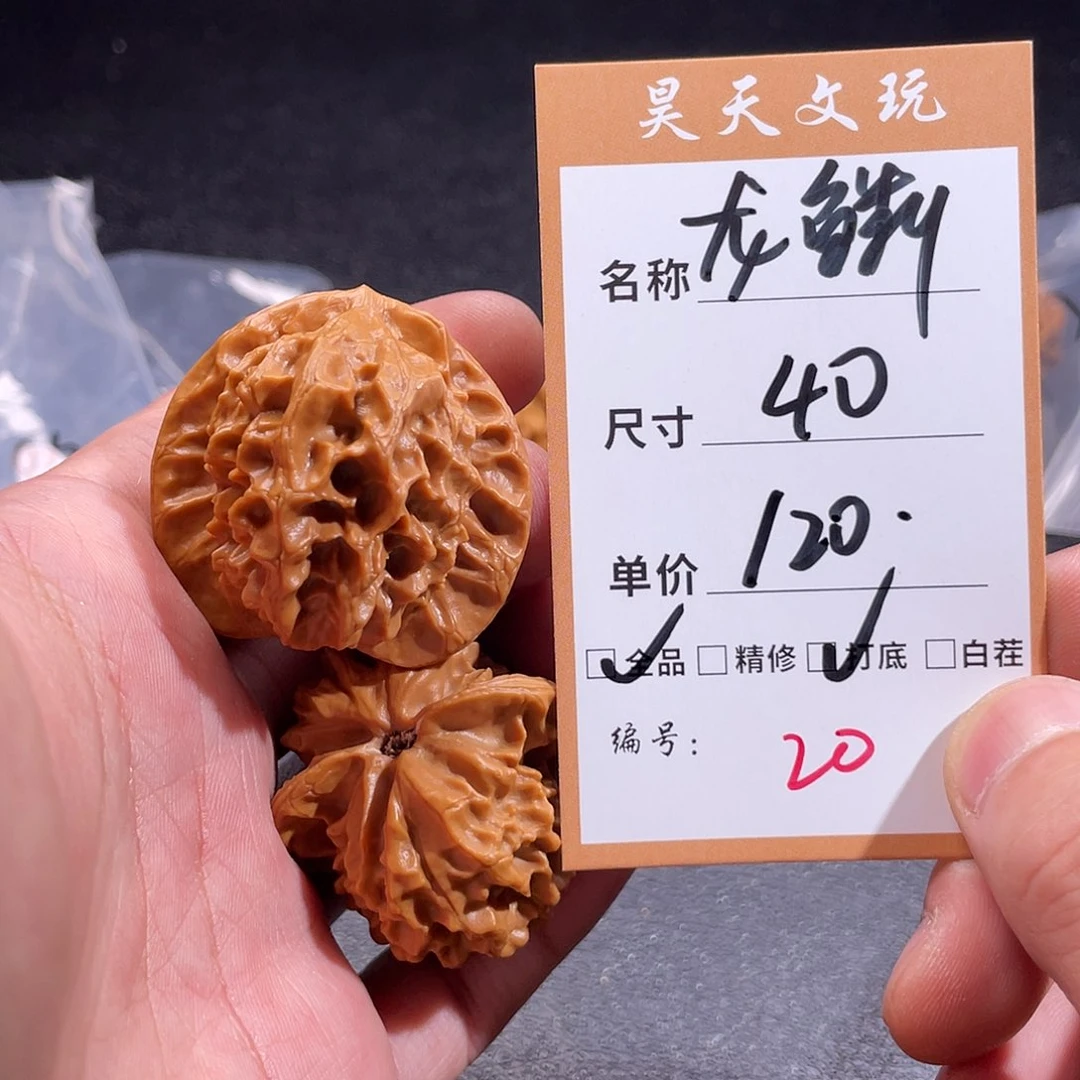 昊天文玩
名称 龙鳞
尺寸 40
单价 120.
全品 精修 打底 白茬
编号: 20